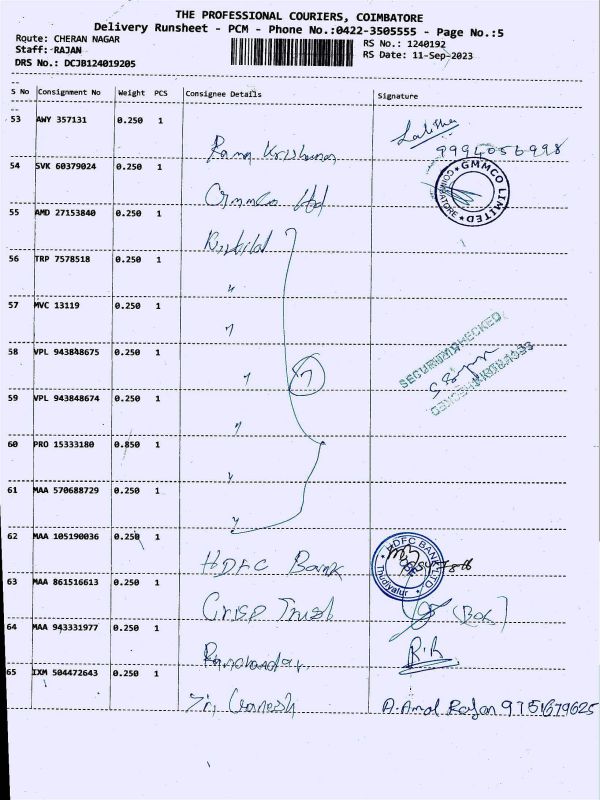 THE PROFESSIONAL COURIERS, COIMBATORE
Delivery Runsheet - PCM - Phone No.:0422-3505555 - Page No.:5
Route: CHERAN NAGAR
RS No.: 1240192
Staff: RAJAN
RS Date: 11-Sep-2023
DRS No.: DCJB124019205
S No Consignment No Weight PCS Consignee Details Signature
53 AWY 357131 0.250 1
Rama Krishnan 9994056998
54 SVK 60379024 0.250 1
Gmmco Ltd GMMCO LIMITED COIMBATORE
55 AMD 27153840 0.250 1
56 TRP 7578518 0.250 1
"
57 MVC 13119 0.250 1
"
58 VPL 943848675 0.250 1
" 7
59 VPL 943848674 0.250 1
"
60 PRO 15333180 0.850 1
"
61 MAA 570688729 0.250 1
"
62 MAA 105190036 0.250 1
HDFC Bank HDFC BANK LTD. Thudiyalur
63 MAA 861516613 0.250 1
Crisp Trust
64 MAA 943331977 0.250 1
R.R
65 IXM 504472643 0.250 1
Sri Ganesh A. Amal Rajan 9751679625